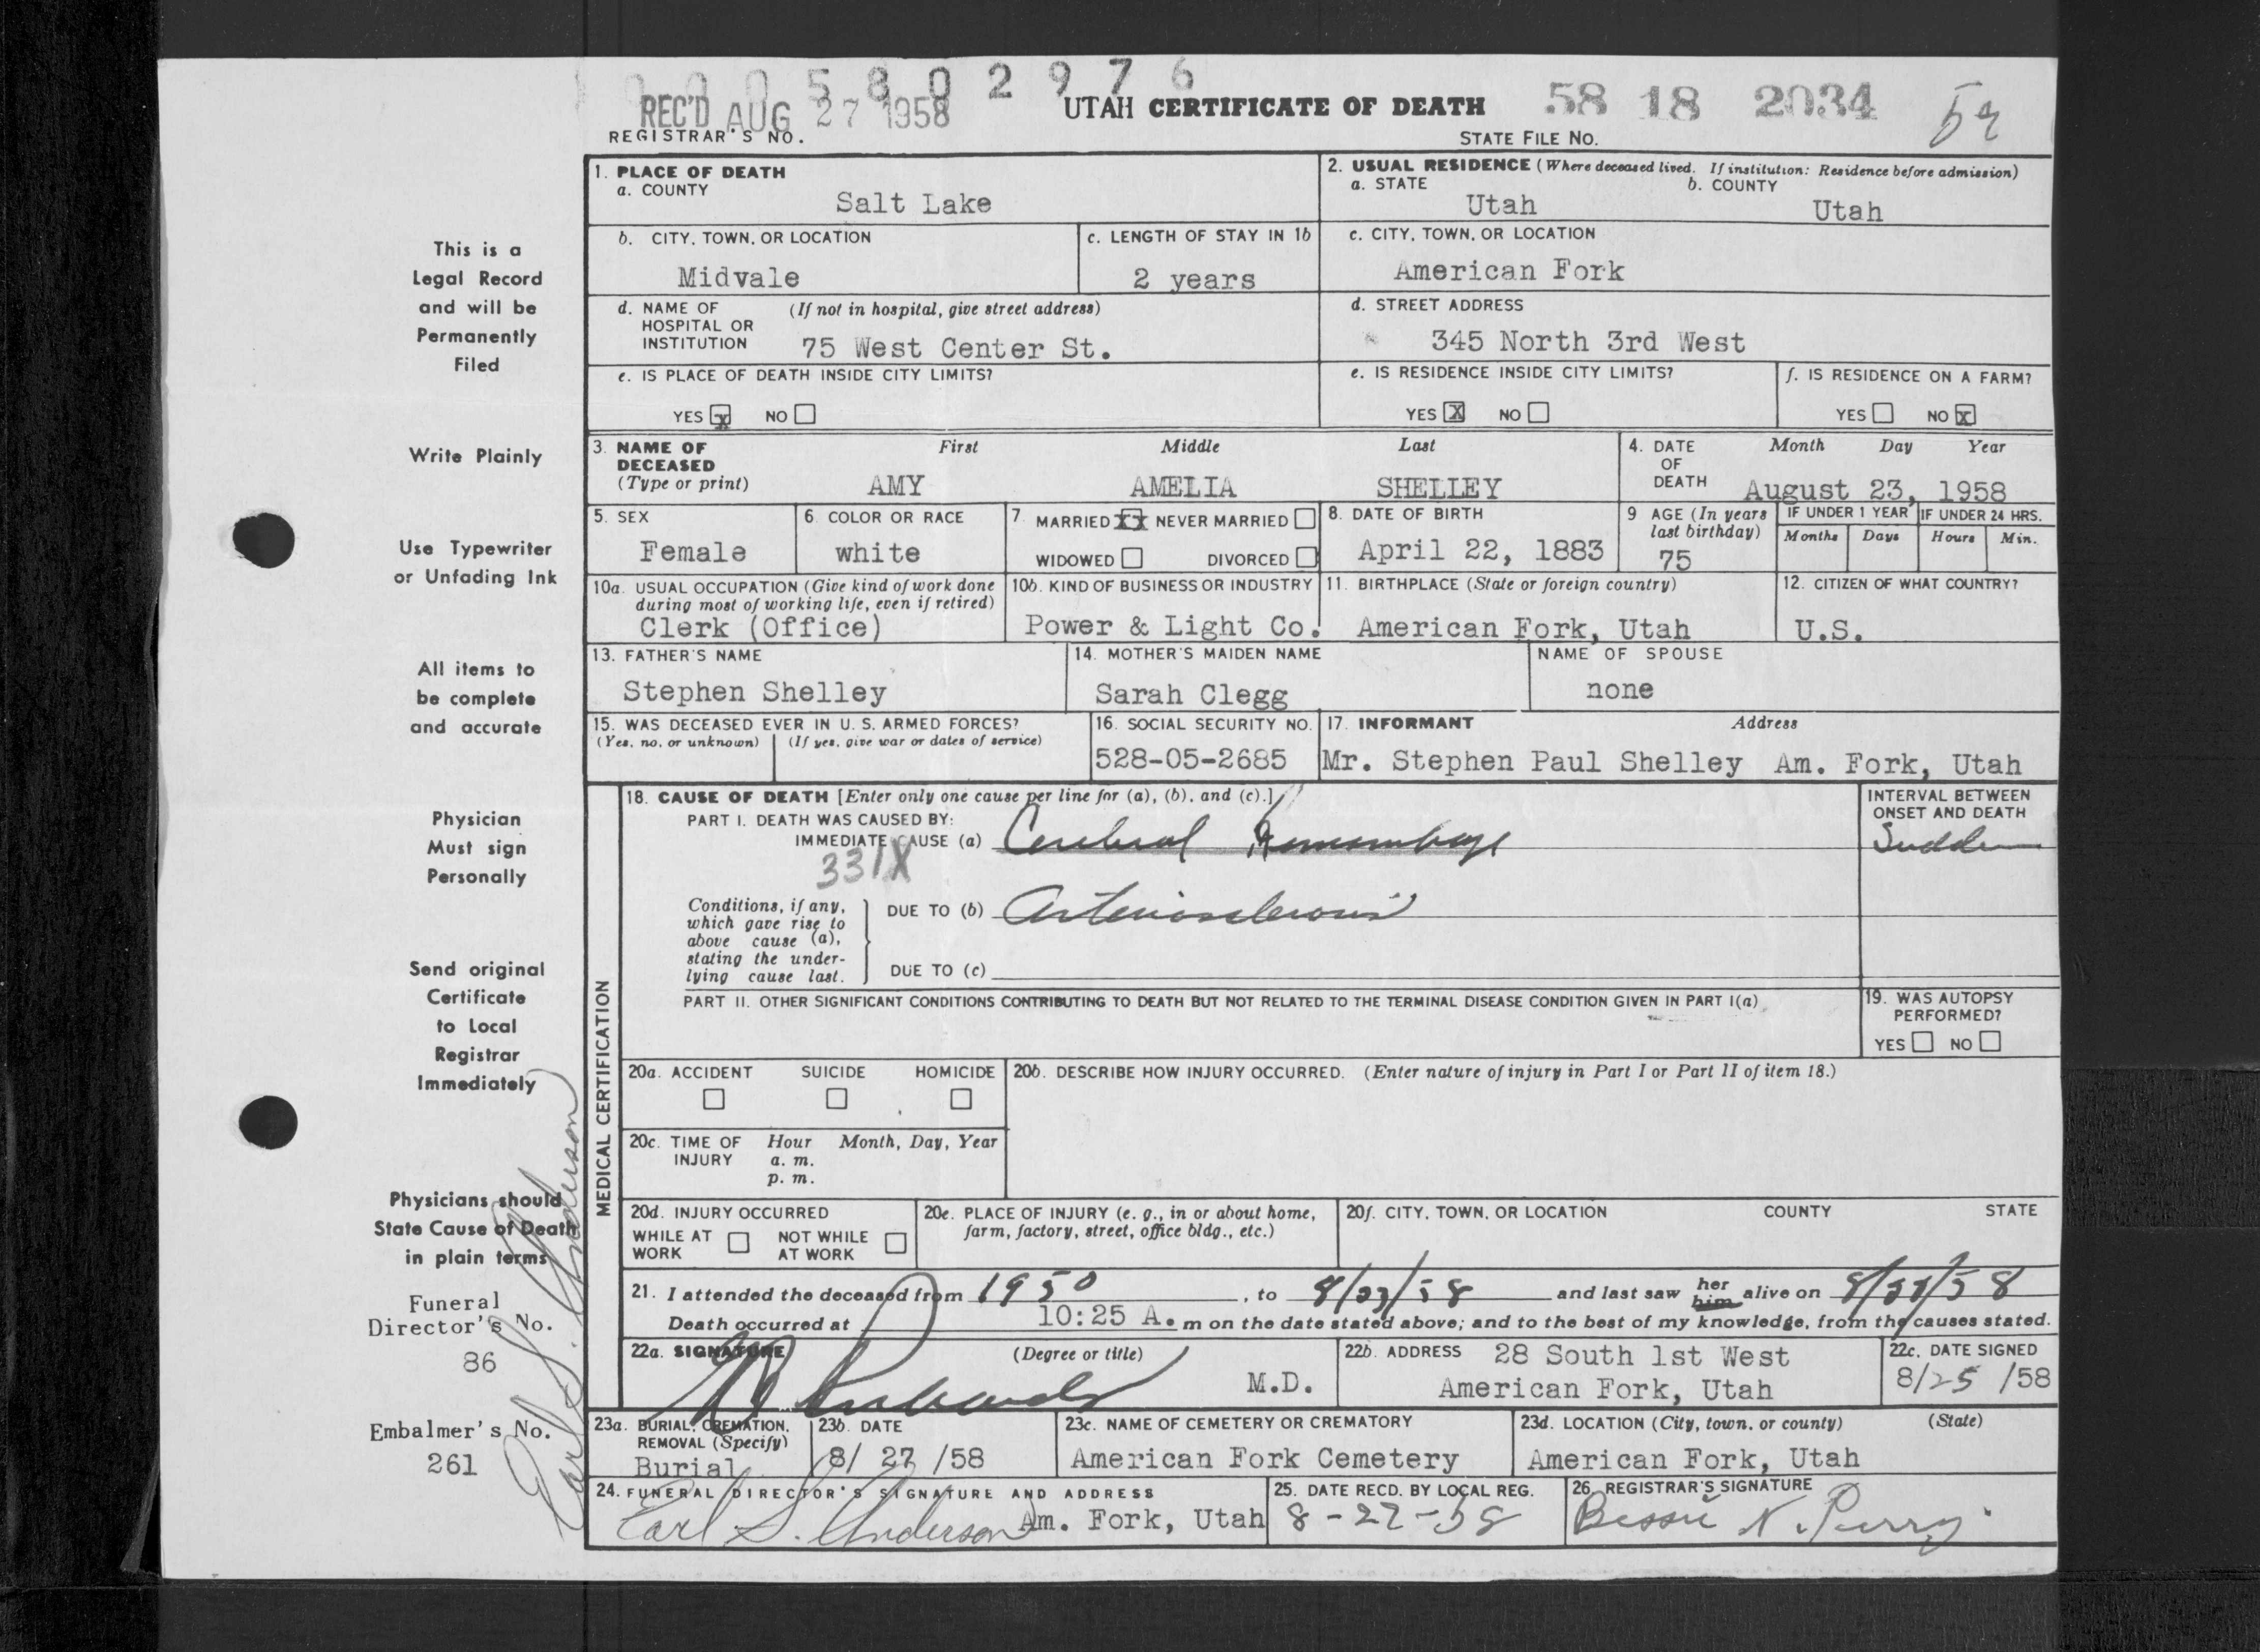 0 0 0 5 8 0 2 9 7 6
REC'D AUG 27 1958
UTAH CERTIFICATE OF DEATH
58 18 2034
REGISTRAR'S NO.
STATE FILE NO.
This is a
Legal Record
and will be
Permanently
Filed
Write Plainly
Use Typewriter
or Unfading Ink
All items to
be complete
and accurate
Physician
Must sign
Personally
Send original
Certificate
to Local
Registrar
Immediately
Physicians should
State Cause of Death
in plain terms
Funeral
Director's No.
86
Embalmer's No.
261
Earl S. Anderson
1. PLACE OF DEATH
a. COUNTY
Salt Lake
2. USUAL RESIDENCE (Where deceased lived. If institution: Residence before admission)
a. STATE
Utah
b. COUNTY
Utah
b. CITY, TOWN, OR LOCATION
Midvale
c. LENGTH OF STAY IN 1b
2 years
c. CITY, TOWN, OR LOCATION
American Fork
d. NAME OF (If not in hospital, give street address)
HOSPITAL OR
INSTITUTION 75 West Center St.
d. STREET ADDRESS
345 North 3rd West
e. IS PLACE OF DEATH INSIDE CITY LIMITS?
YES X NO
e. IS RESIDENCE INSIDE CITY LIMITS?
YES X NO
f. IS RESIDENCE ON A FARM?
YES NO X
3. NAME OF DECEASED
(Type or print)
First Middle Last
AMY AMELIA SHELLEY
4. DATE OF DEATH
Month Day Year
August 23, 1958
5. SEX
Female
6. COLOR OR RACE
white
7. MARRIED XX NEVER MARRIED
WIDOWED DIVORCED
8. DATE OF BIRTH
April 22, 1883
9 AGE (In years
last birthday)
75
IF UNDER 1 YEAR
Months Days
IF UNDER 24 HRS.
Hours Min.
10a. USUAL OCCUPATION (Give kind of work done
during most of working life, even if retired)
Clerk (Office)
10b. KIND OF BUSINESS OR INDUSTRY
Power & Light Co.
11. BIRTHPLACE (State or foreign country)
American Fork, Utah
12. CITIZEN OF WHAT COUNTRY?
U.S.
13. FATHER'S NAME
Stephen Shelley
14. MOTHER'S MAIDEN NAME
Sarah Clegg
NAME OF SPOUSE
none
15. WAS DECEASED EVER IN U. S. ARMED FORCES?
(Yes, no, or unknown) (If yes, give war or dates of service)
16. SOCIAL SECURITY NO.
528-05-2685
17. INFORMANT Address
Mr. Stephen Paul Shelley Am. Fork, Utah
MEDICAL CERTIFICATION
18. CAUSE OF DEATH [Enter only one cause per line for (a), (b), and (c).]
PART I. DEATH WAS CAUSED BY:
IMMEDIATE CAUSE (a) Cerebral Hemorrhage
331X
INTERVAL BETWEEN
ONSET AND DEATH
Sudden
Conditions, if any,
which gave rise to
above cause (a),
stating the under-
lying cause last.
DUE TO (b) Arteriosclerosis
DUE TO (c)
PART II. OTHER SIGNIFICANT CONDITIONS CONTRIBUTING TO DEATH BUT NOT RELATED TO THE TERMINAL DISEASE CONDITION GIVEN IN PART I(a)
19. WAS AUTOPSY
PERFORMED?
YES NO
20a. ACCIDENT SUICIDE HOMICIDE
20b. DESCRIBE HOW INJURY OCCURRED. (Enter nature of injury in Part I or Part II of item 18.)
20c. TIME OF INJURY
Hour Month, Day, Year
a. m.
p. m.
20d. INJURY OCCURRED
WHILE AT WORK NOT WHILE AT WORK
20e. PLACE OF INJURY (e. g., in or about home,
farm, factory, street, office bldg., etc.)
20f. CITY, TOWN, OR LOCATION COUNTY STATE
21. I attended the deceased from 1950, to 8/23/58 and last saw her him alive on
Death occurred at 10:25 A. m on the date stated above; and to the best of my knowledge, from the causes stated.
22a. SIGNATURE (Degree or title)
M.D.
22b. ADDRESS 28 South 1st West
American Fork, Utah
22c. DATE SIGNED
8/25/58
23a. BURIAL, CREMATION,
REMOVAL (Specify)
Burial
23b. DATE
8/ 27 /58
23c. NAME OF CEMETERY OR CREMATORY
American Fork Cemetery
23d. LOCATION (City, town, or county) (State)
American Fork, Utah
24. FUNERAL DIRECTOR'S SIGNATURE AND ADDRESS
Earl S. Anderson Am. Fork, Utah
25. DATE RECD. BY LOCAL REG.
8-27-58
26. REGISTRAR'S SIGNATURE
Bessie N. Perry